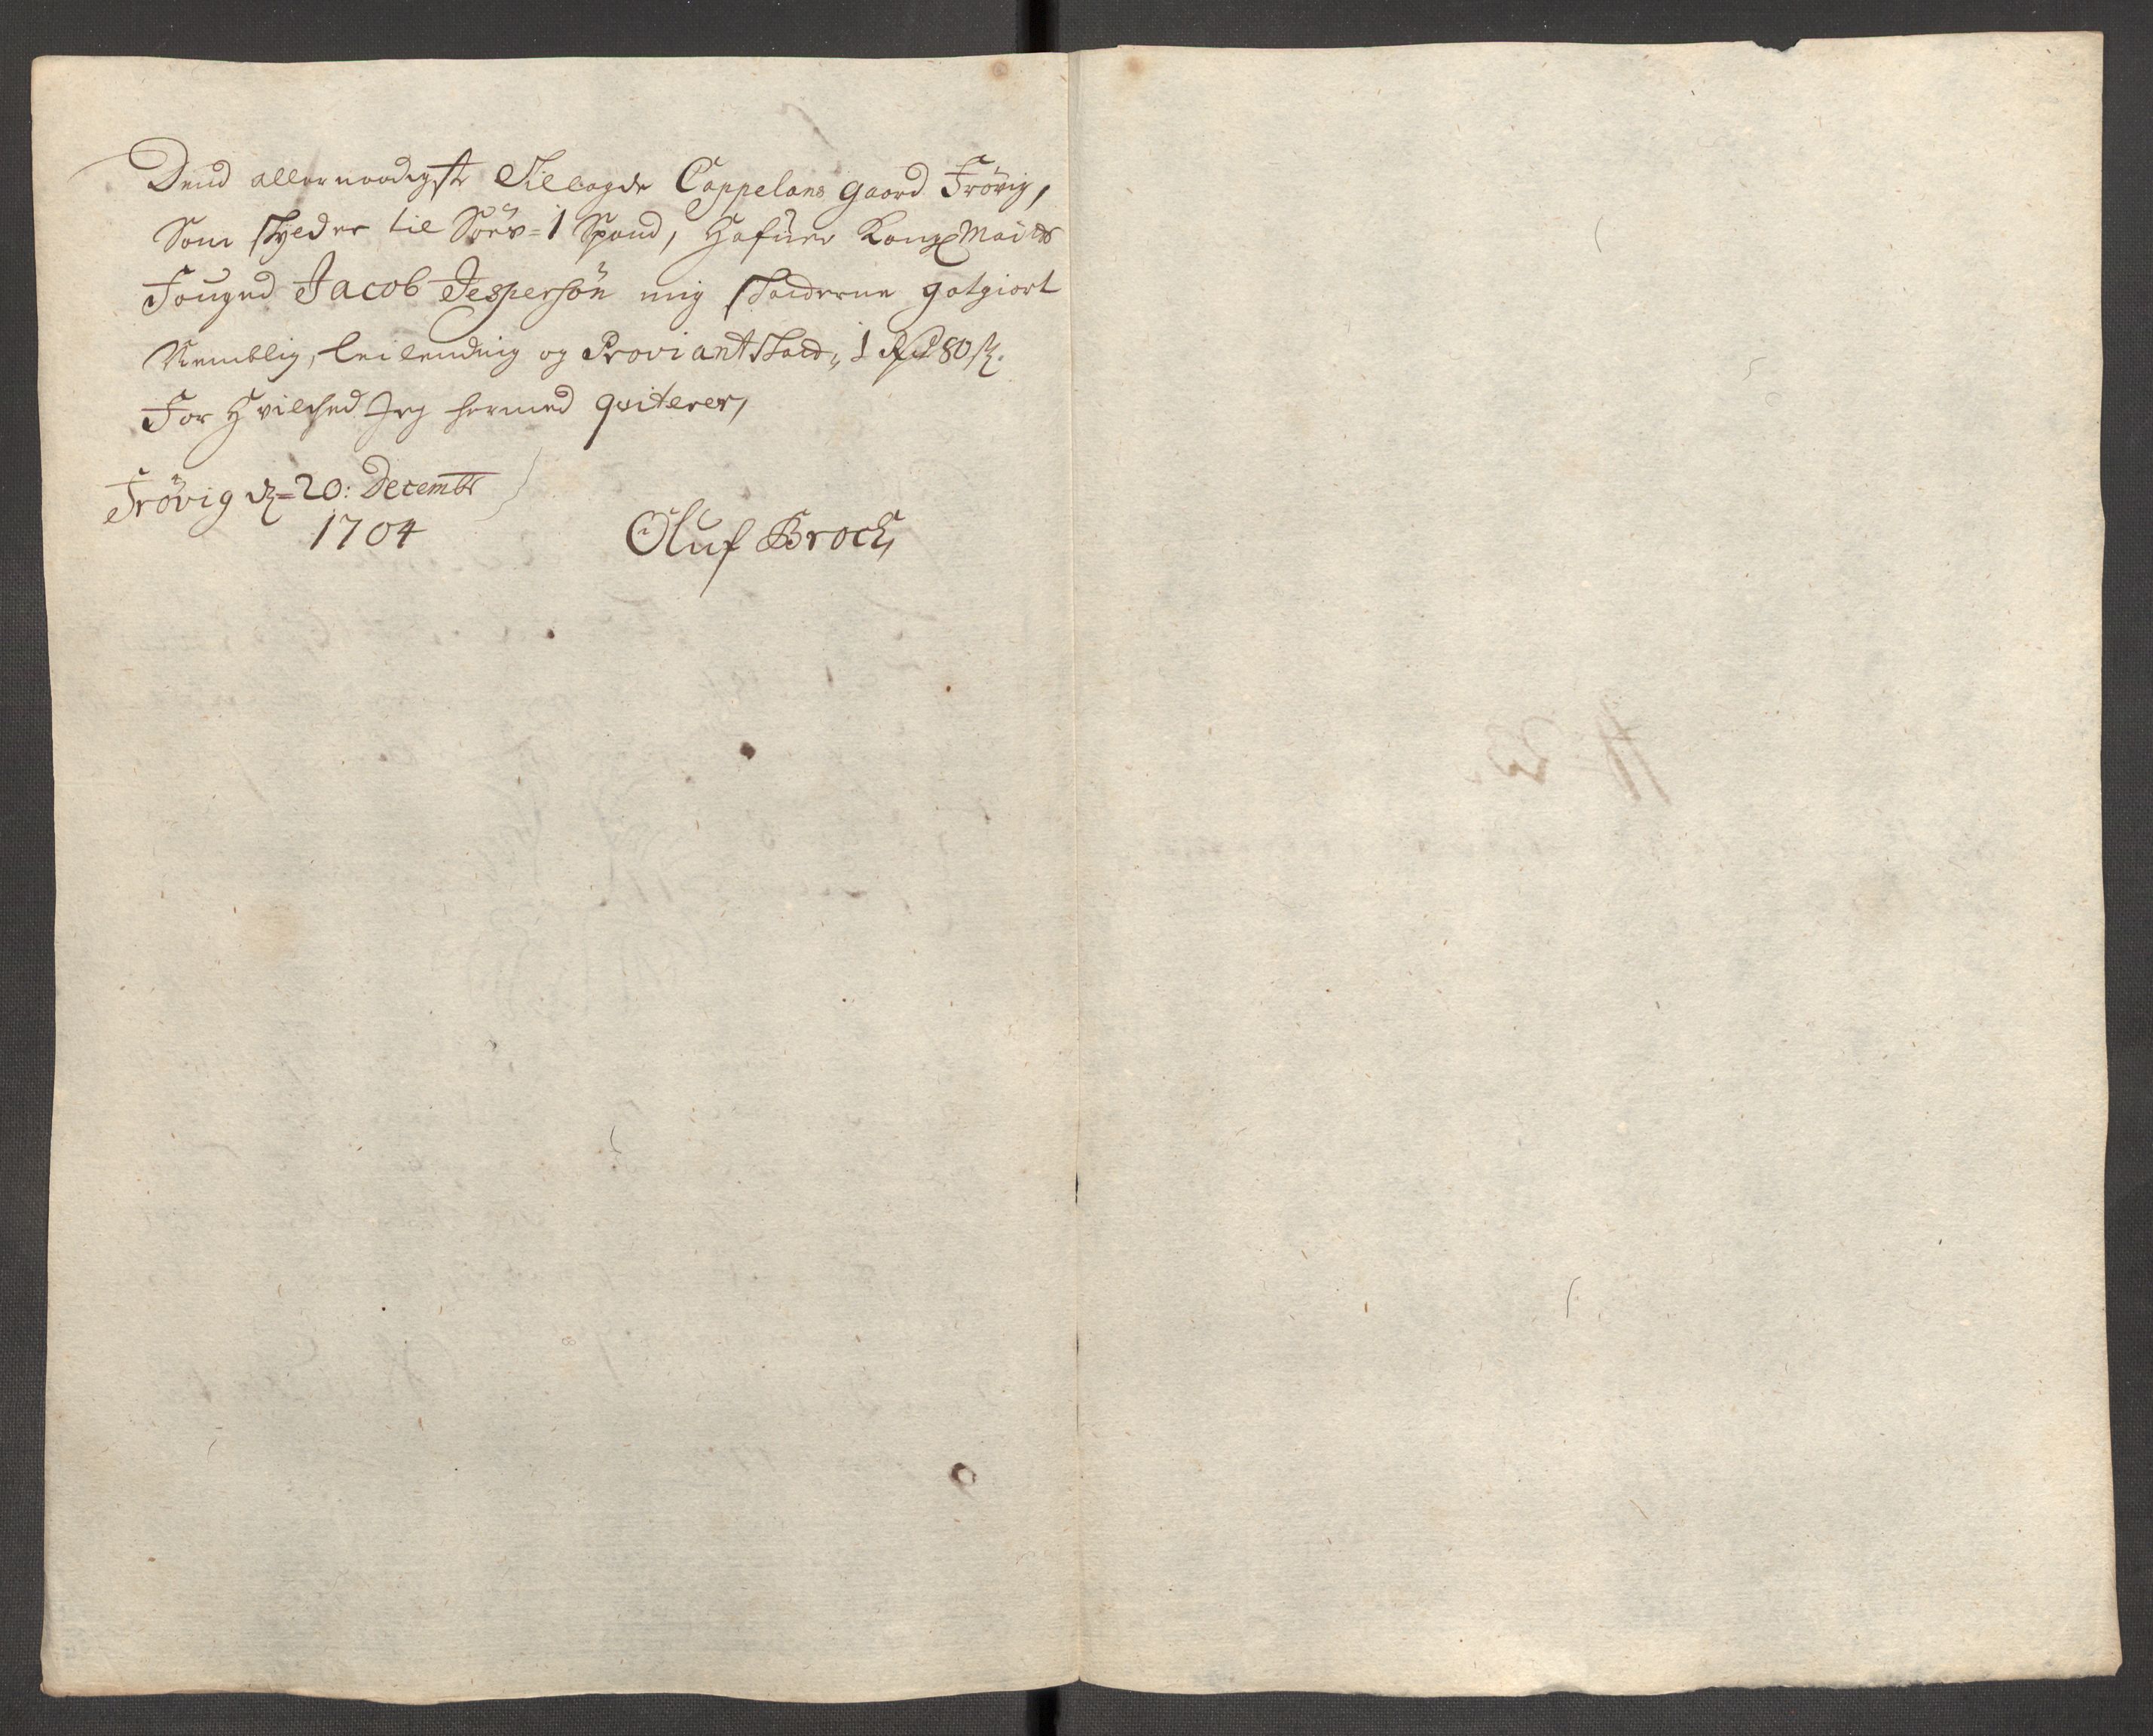 Dend allernaadigste Tillagde Cappelans gaard Frövig,
Som skylder til 1 Spand, Hafuer Kongl Maÿts
Fouged Jacob Jespersön mig skatterne gotgiort
Nemblig, Leilending og Proviant Skatt, 1 Rd 80 s.
For Hvilched Jeg hermed qviterer,
Frövig d. 20: Decembr
1704
Oluf Brock,